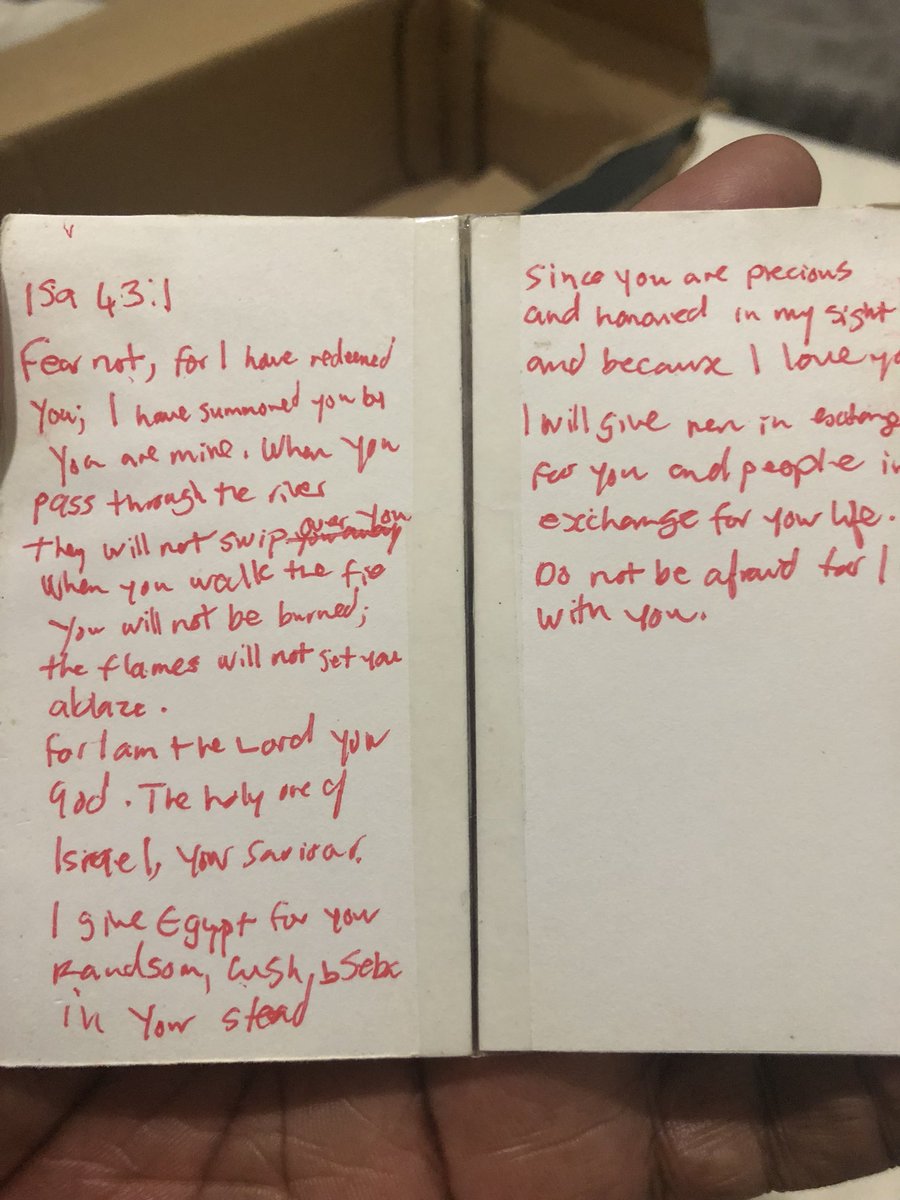 Isa 43:1
Fear not, for I have redeemed
you; I have summoned you by
You are mine. When you
pass through the rives
they will not swip over you
When you walk the fie
You will not be burned;
the flames will not set you
ablaze.
For I am the Lord your
God. The holy one of
Israel, your Saviour.
I give Egypt for your
Randsom, Cush, bSeba
in your stead
Since you are precious
and honored in my sight
and because I love yo
I will give men in exchange
For you and people in
exchange for your life.
Do not be afraid for I
with you.